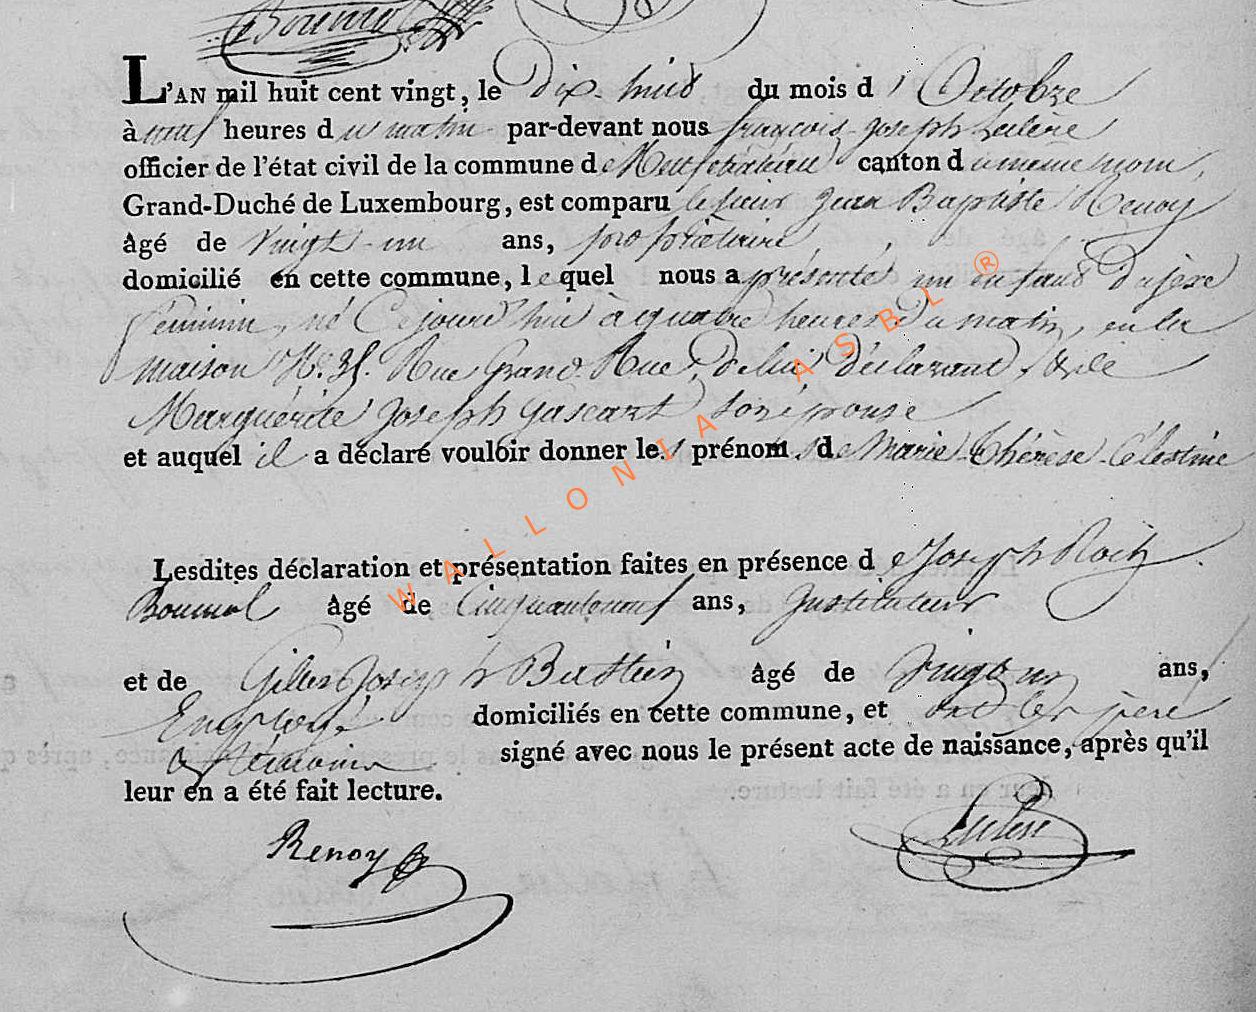 Boumal
L'AN mil huit cent vingt, le Dix-huit du mois d'Octobre
à neuf heures du matin par-devant nous françois-joseph
officier de l'état civil de la commune de Neufchâteau canton du même nom,
Grand-Duché de Luxembourg, est comparu le sieur Jean Baptiste Renoy
âgé de vingt-un ans, propriétaire,
domicilié en cette commune, lequel nous a présenté un enfant du sexe
féminin, né Cejourd'hui à quatre heures du matin, en la
maison N.° 35. Rue Grand Rue, de lui déclarant, & de
Marguérite Joseph Gascart son épouse
et auquel il a déclaré vouloir donner les prénoms de Marie-Thérèse-Célestine
Lesdites déclaration et présentation faites en présence de Joseph
Boumal âgé de Cinquanteneuf ans, Instituteur
et de Gilles Joseph Bastin âgé de vingt ans,
Employé, domiciliés en cette commune, et ont les père
& témoins signé avec nous le présent acte de naissance, après qu'il
leur en a été fait lecture.
Renoy
WALLONIA ASBL ®